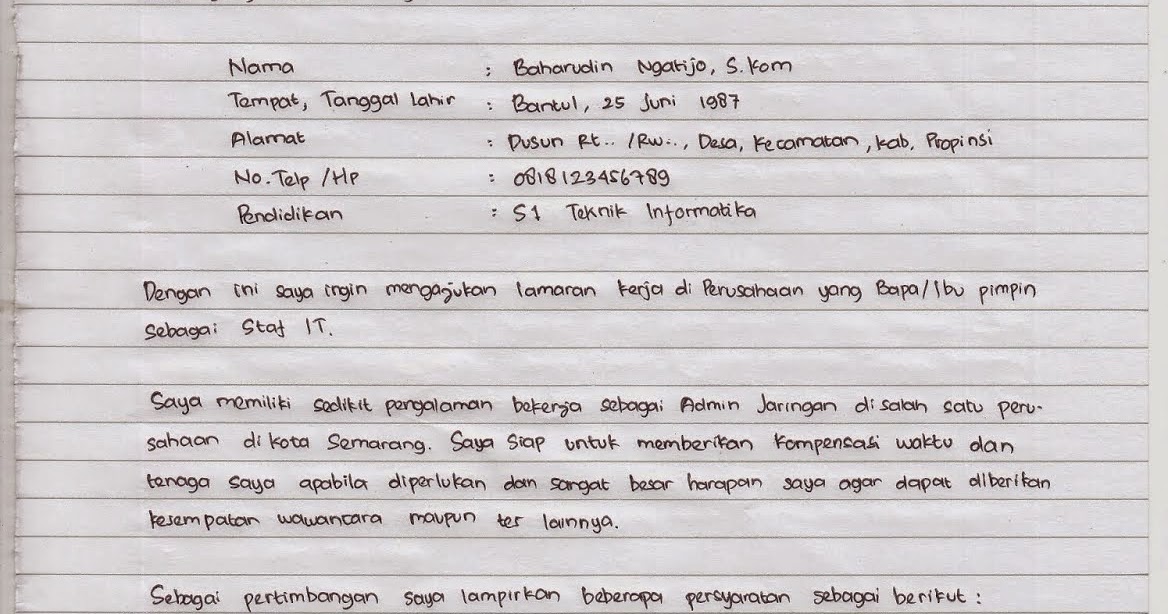 Nama : Baharudin Ngatijo, S.Kom
Tempat, Tanggal Lahir : Bantul, 25 Juni 1987
Alamat : Dusun Rt.. /Rw.., Desa, Kecamatan, kab, Propinsi
No. Telp /Hp : 0818123456789
Pendidikan : S1 Teknik Informatika
Dengan ini saya ingin mengajukan lamaran kerja di Perusahaan yang Bapa/Ibu pimpin
sebagai Staf IT.
Saya memiliki sedikit pengalaman bekerja sebagai Admin Jaringan di salah satu peru-
sahaan di kota Semarang. Saya siap untuk memberikan kompensasi waktu dan
tenaga saya apabila diperlukan dan sangat besar harapan saya agar dapat diberikan
kesempatan wawancara maupun tes lainnya.
Sebagai pertimbangan saya lampirkan beberapa persyaratan sebagai berikut :